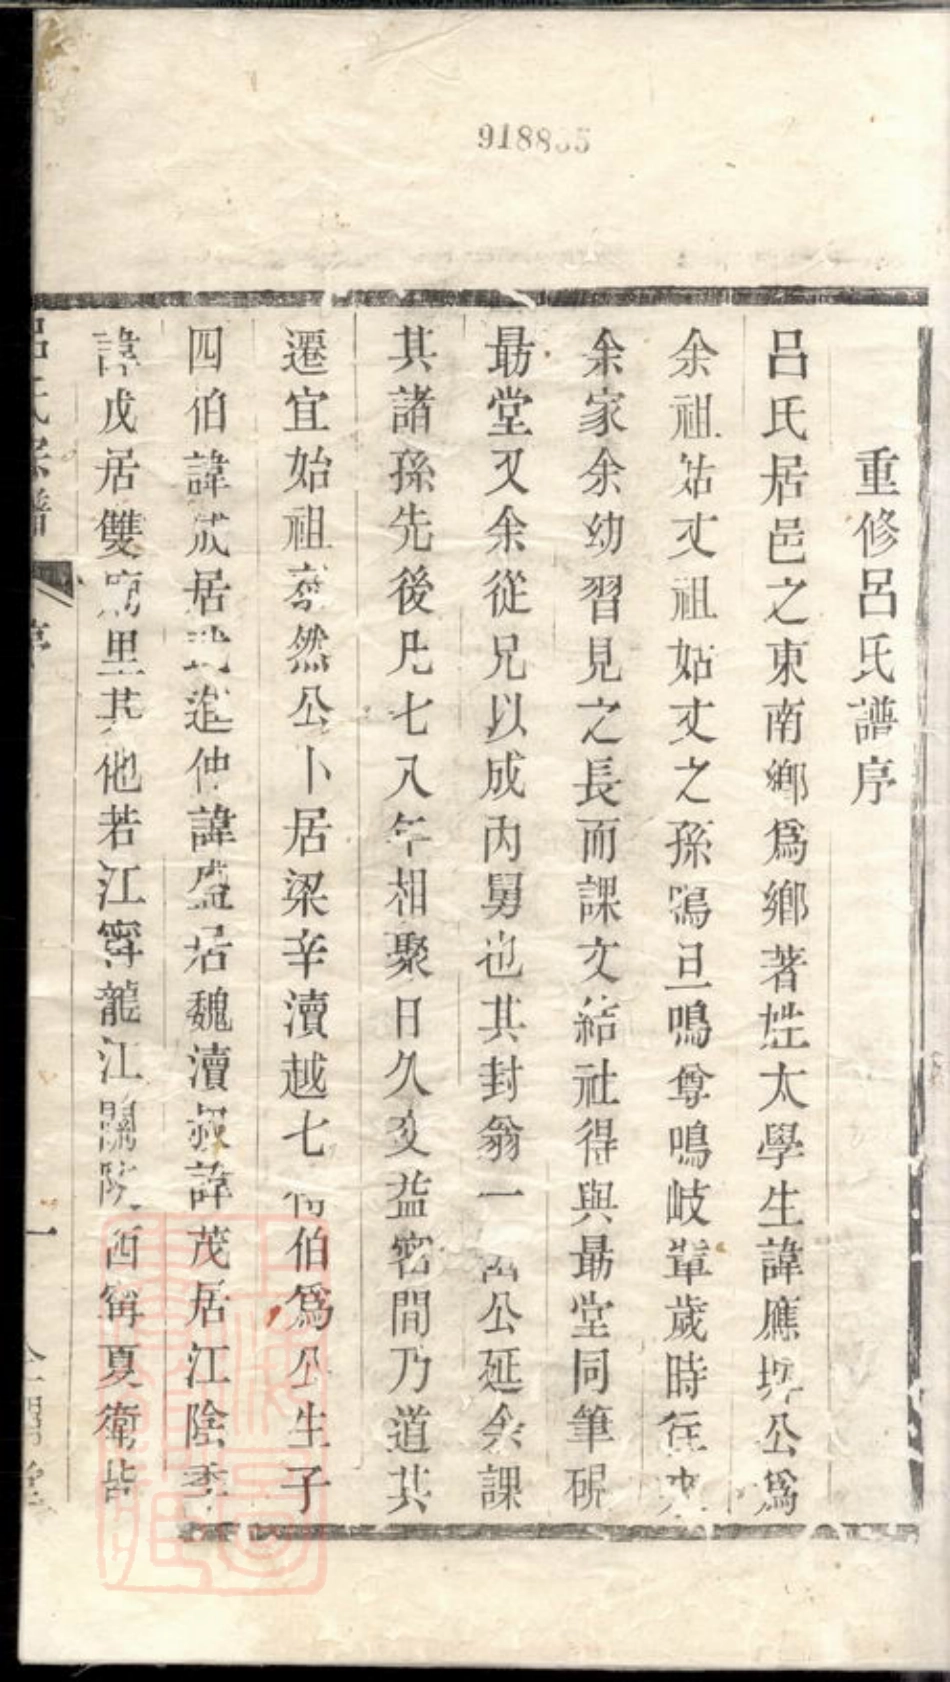 重修呂氏譜序
呂氏居邑之東南鄉爲鄉著姓太學生諱應公爲
余祖姑丈祖姑丈之孫鳴旦鳴尊鳴岐輩歲時往來
余家余幼習見之長而課文結社得與最堂同筆硯
最堂又余從兄以成內舅也其封翁一公延余課
其諸孫先後凡七八年相聚日久交益密間乃道其
遷宜始祖然公卜居梁辛瀆越七伯爲公生子
四伯諱成居武進仲諱盛居魏瀆叔諱茂居江陰季
諱戊居雙廟里其他若江寧龍江關陜西寧夏衛皆
呂氏宗譜
序
一
918835